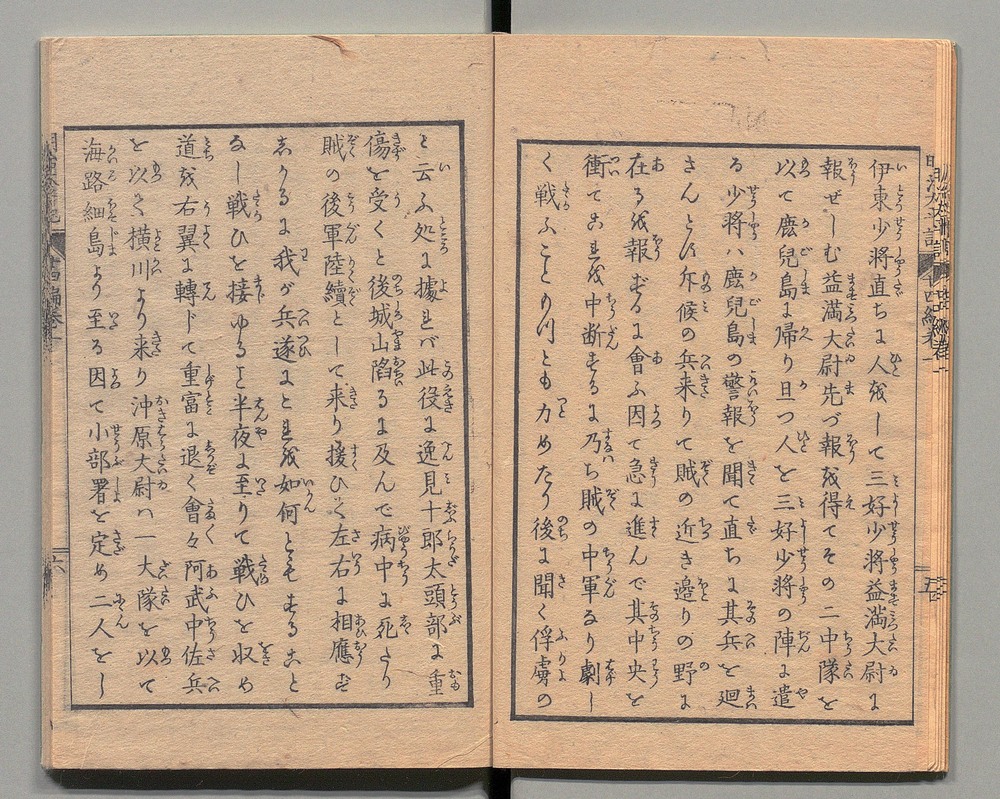 伊東少將直ちに人をして三好少將益滿大尉に
報ぜしむ益滿大尉先づ報を得てその二中隊を
以て鹿兒島に帰り旦つ人を三好少將の陣に遣
る少將ハ鹿兒島の警報を聞て直ちに其兵を廻
さんとし斥候の兵来りて賊の近き邊りの野に
在るを報ずるに會ふ因て急に進んで其中央を
衝てこれを中断するに乃ち賊の中軍なり劇し
く戦ふこと力めたり後に聞く俘虜の
と云ふ処に據れバ此役に逸見十郎太頭部に重
傷を受くと後城山陷るに及んで病中に死たり
賊の後軍陸續として来り援ひく左右に相應ず
しかるに我が兵遂にこれを如何ともすること
なし戦ひを接ゆること半夜に至りて戦ひを収め
道を右翼に轉じて重富に退く會々阿武中佐兵
を以て横川より来り沖原大尉ハ一大隊を以て
海路細島より至る因て小部署を定め二人をし